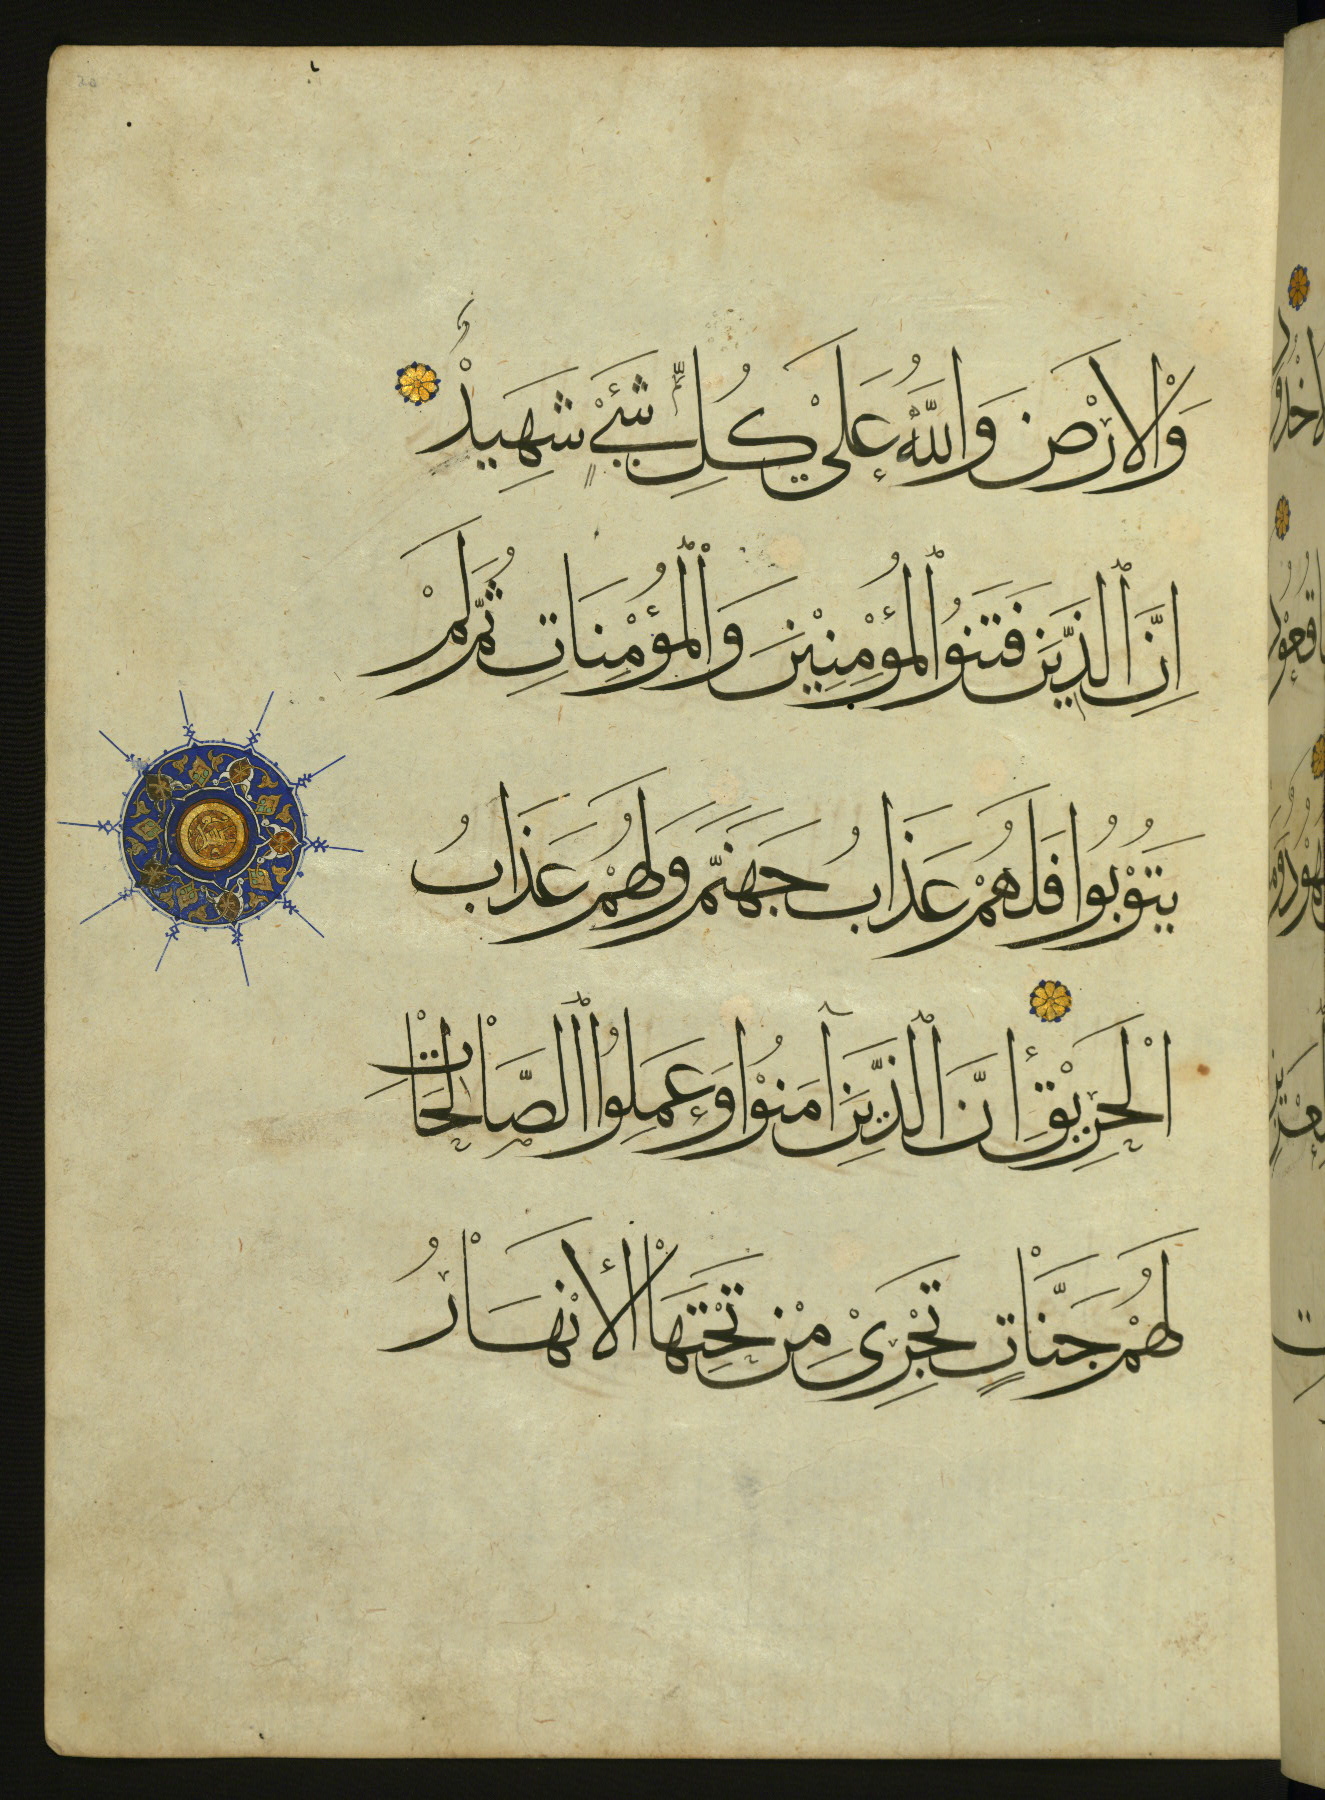 وَالْاَرْضِ وَاللَّهُ عَلَىٰ كُلِّ شَيْءٍ شَهِيدٌ
اِنَّ الَّذِينَ فَتَنُوا الْمُؤْمِنِينَ وَالْمُؤْمِنَاتِ ثُمَّ لَمْ
يَتُوبُوا فَلَهُمْ عَذَابُ جَهَنَّمَ وَلَهُمْ عَذَابُ
الْحَرِيقِ اِنَّ الَّذِينَ آمَنُوا وَعَمِلُوا الصَّالِحَاتِ
لَهُمْ جَنَّاتٌ تَجْرِي مِنْ تَحْتِهَا الْأَنْهَارُ